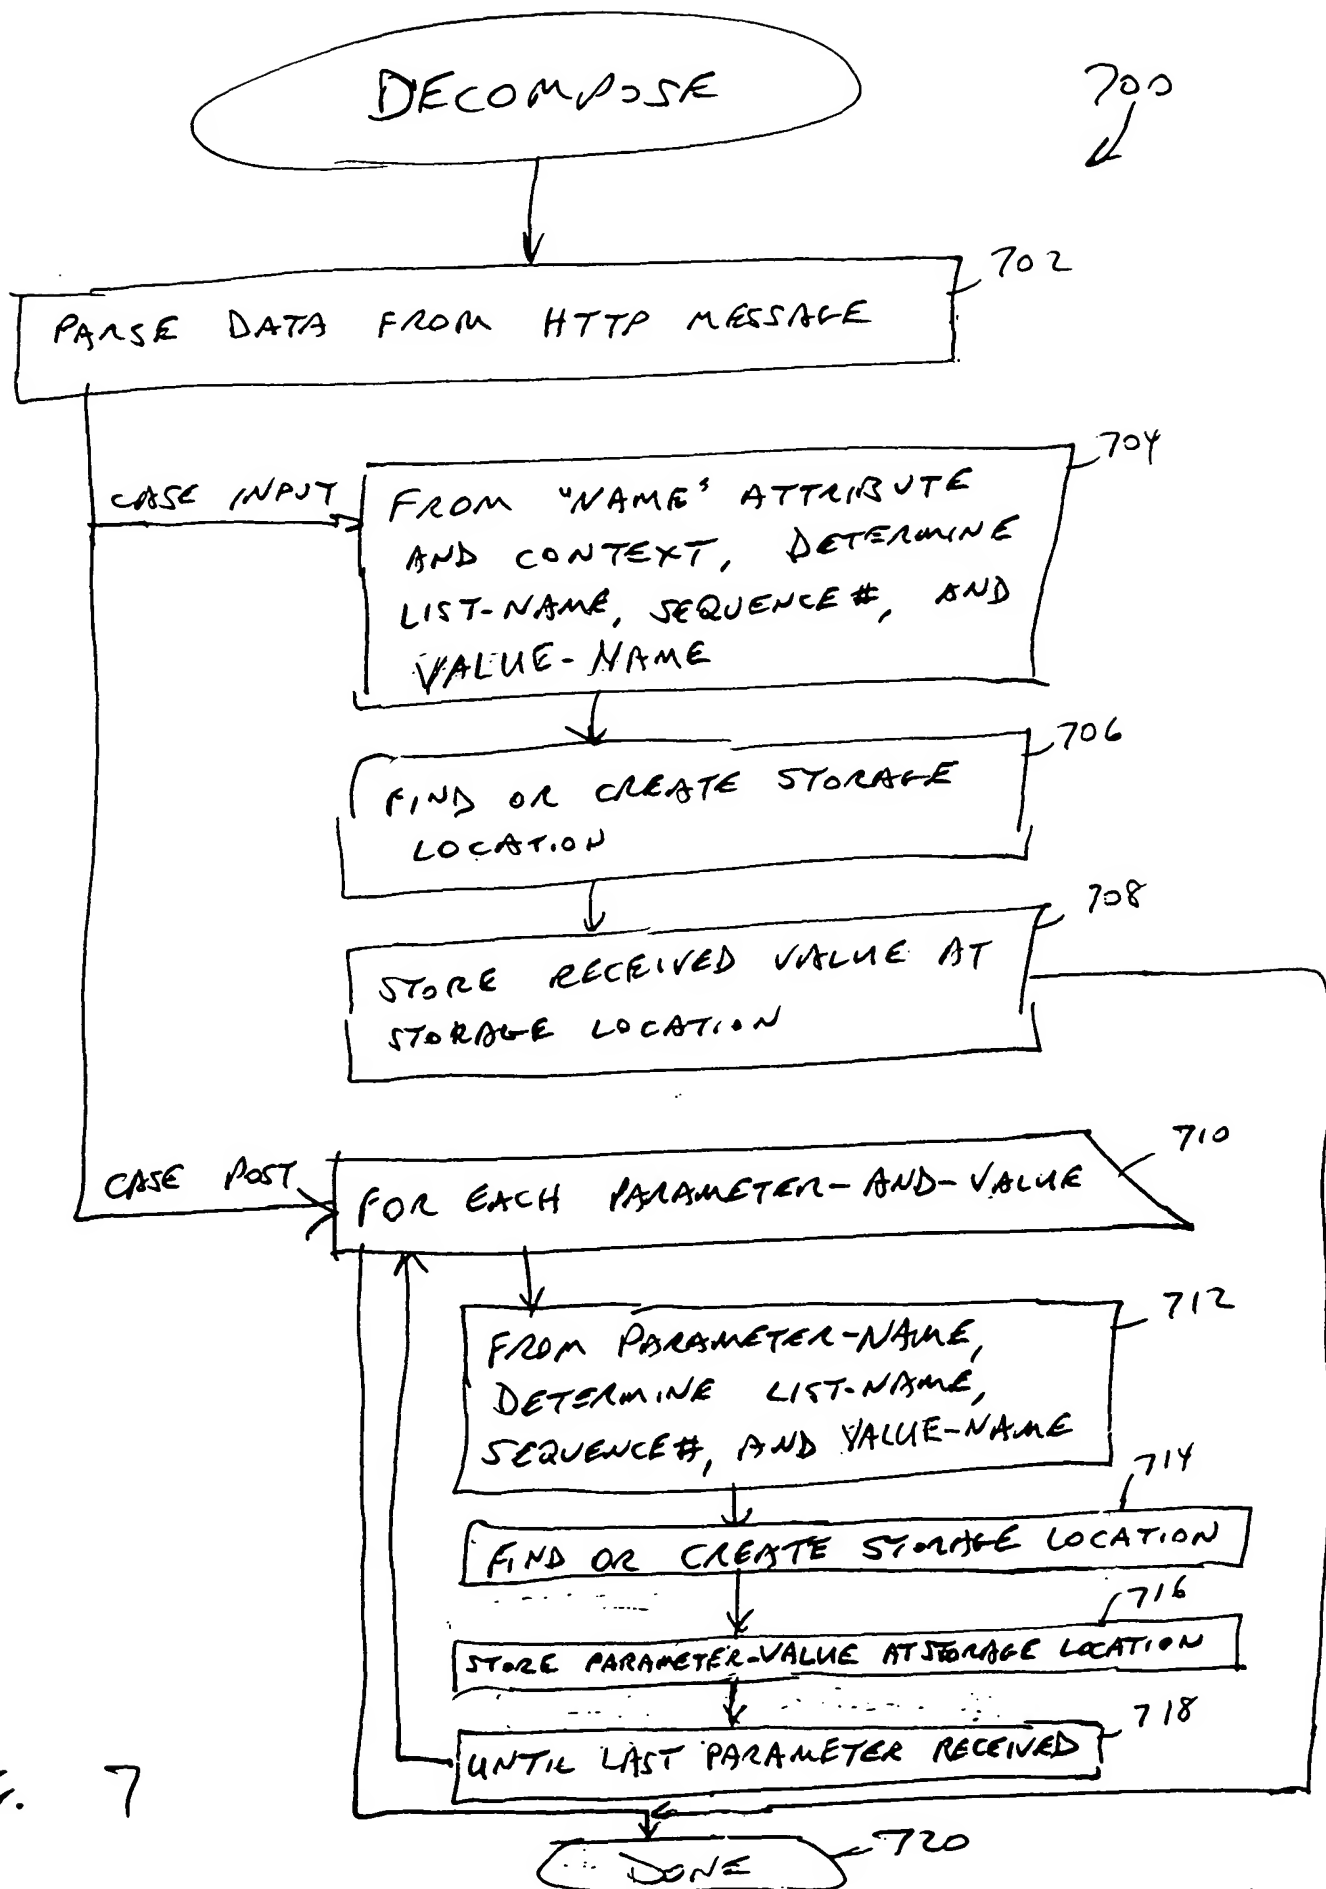 DECOMPOSE
700
702
PARSE DATA FROM HTTP MESSAGE
704
CASE INPUT
FROM "NAME" ATTRIBUTE
AND CONTEXT, DETERMINE
LIST-NAME, SEQUENCE #, AND
VALUE-NAME
706
FIND OR CREATE STORAGE
LOCATION
708
STORE RECEIVED VALUE AT
STORAGE LOCATION
710
CASE POST
FOR EACH PARAMETER-AND-VALUE
712
FROM PARAMETER-NAME,
DETERMINE LIST-NAME,
SEQUENCE #, AND VALUE-NAME
714
FIND OR CREATE STORAGE LOCATION
716
STORE PARAMETER-VALUE AT STORAGE LOCATION
718
UNTIL LAST PARAMETER RECEIVED
7
720
DONE